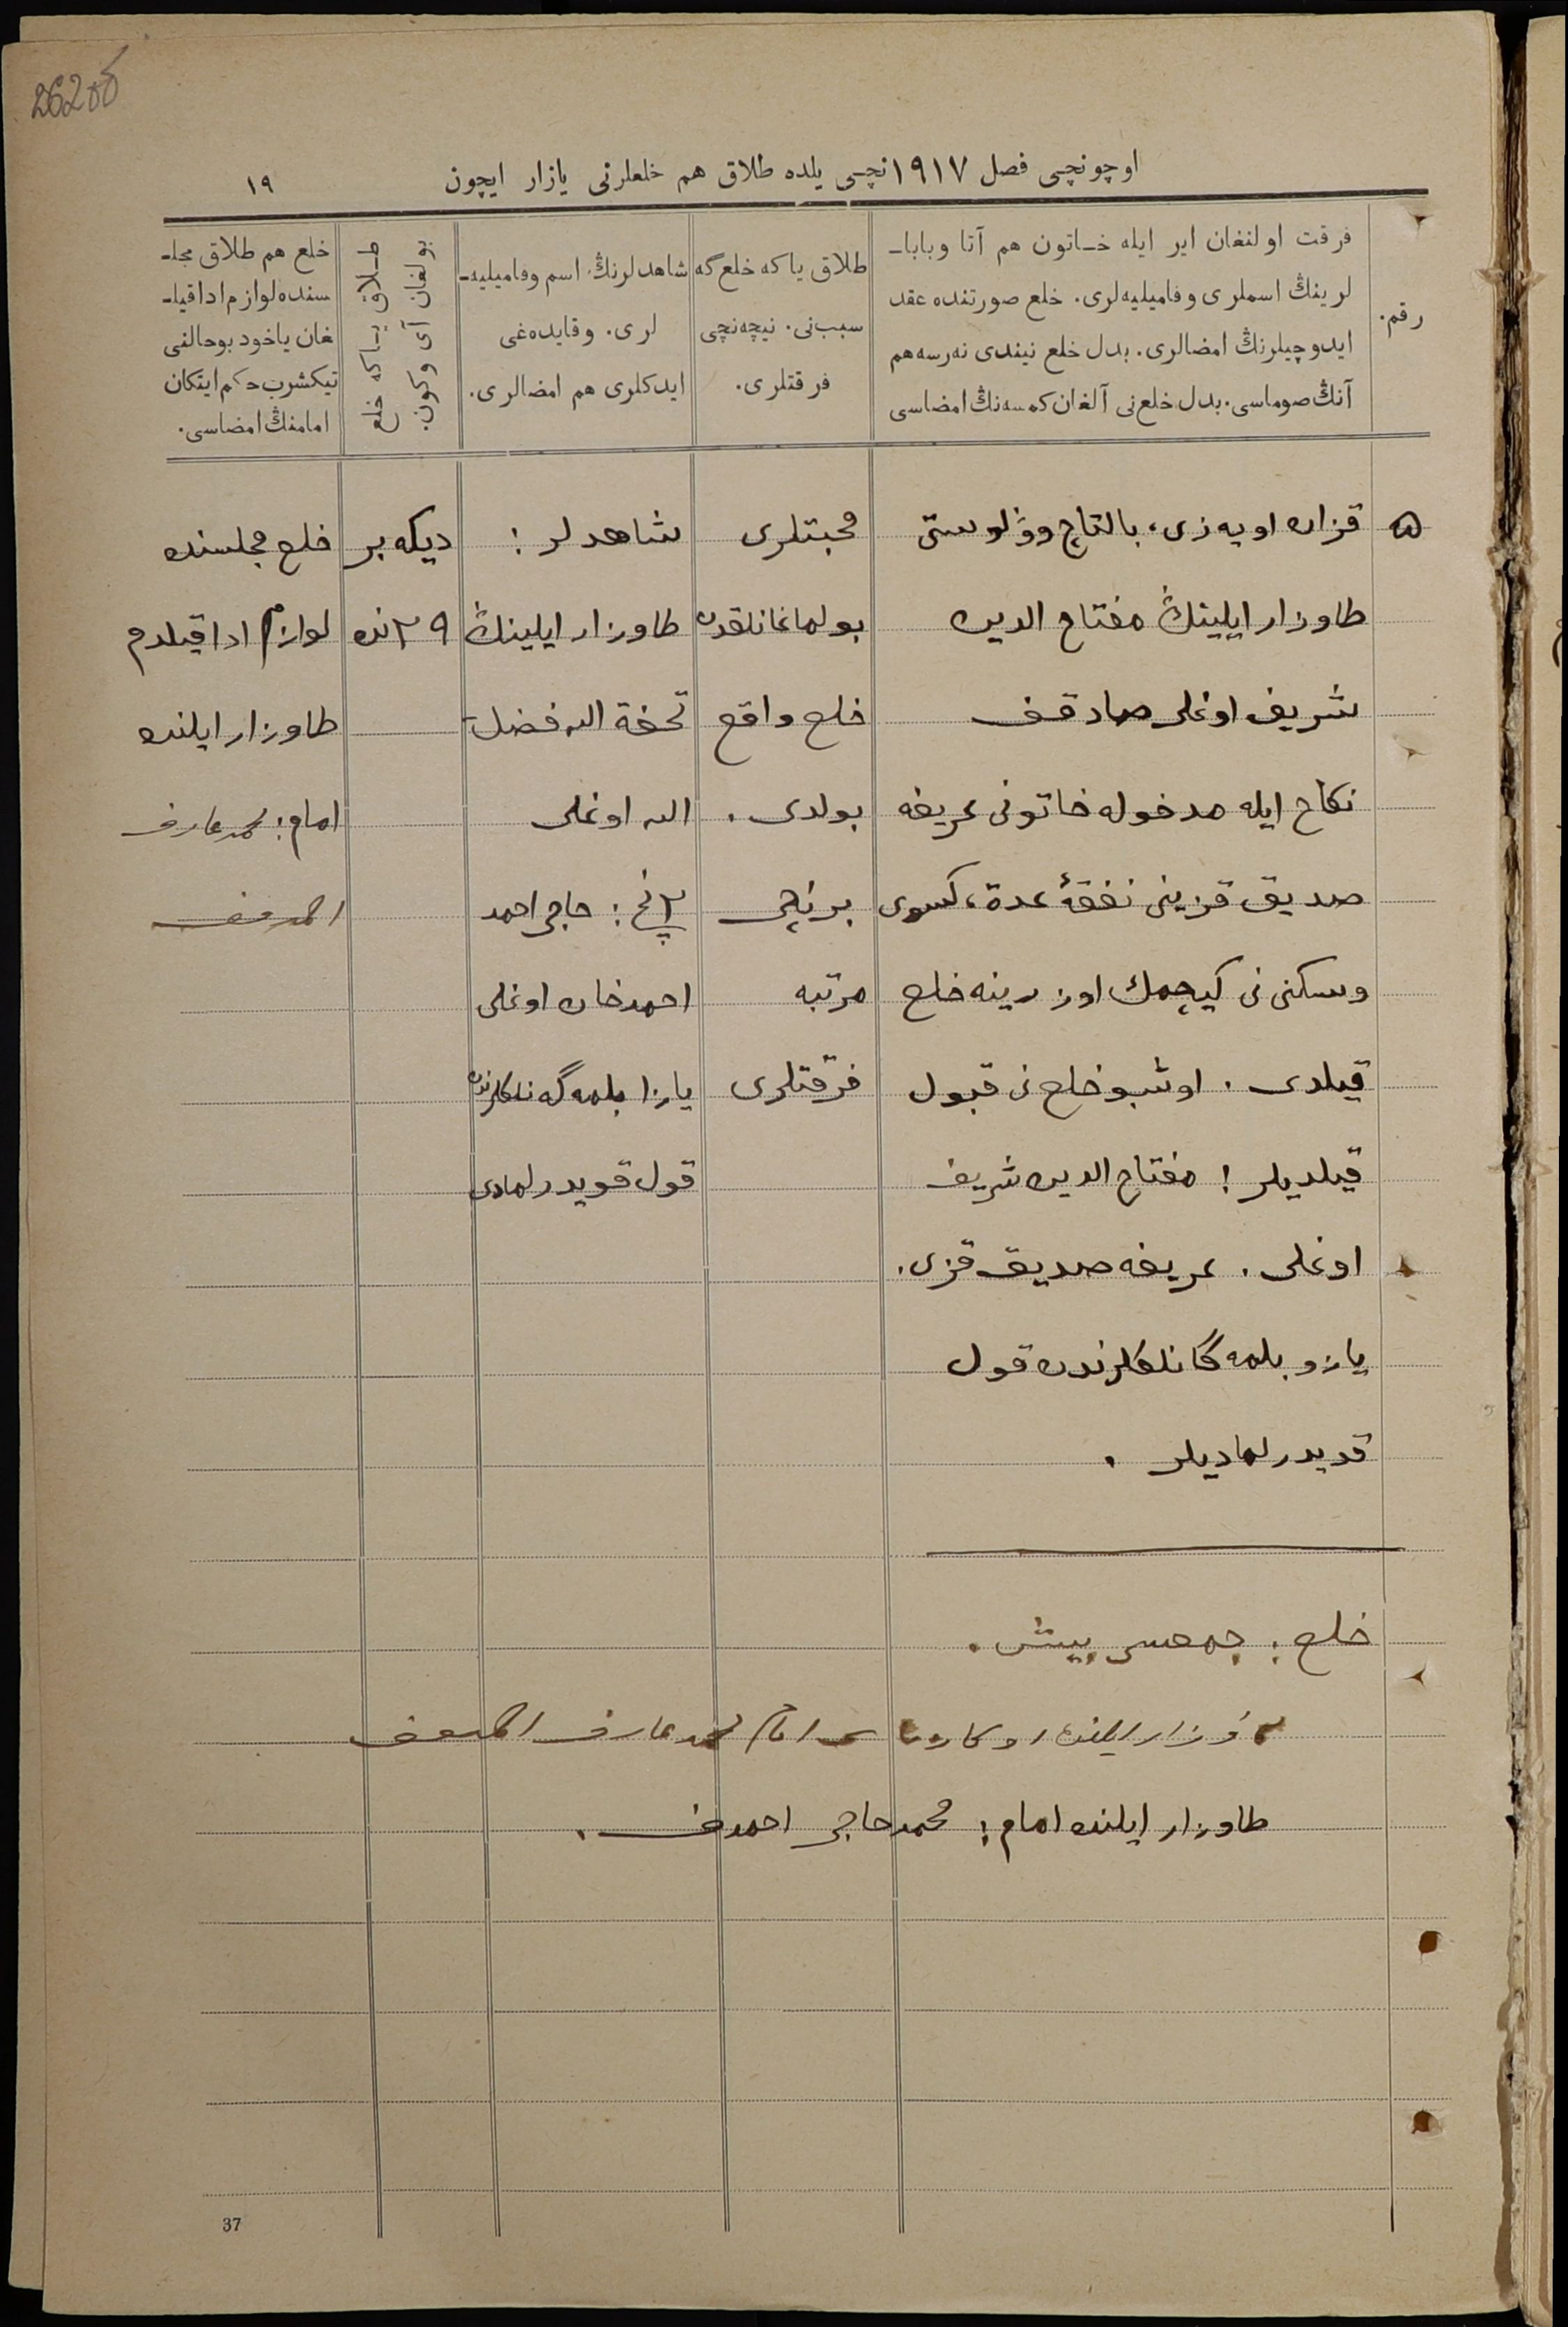 262об
اوچونچی فصل ۱۹۱۷نچی یلده طلاق هم خلعلرنی یازار ایچون
۱۹
رقم.
فرقت اولنغان ایر ایله خاتون هم آتا وبابا-
لرینڭ اسملری وفامیلیه‌لری. خلع صورتنده عقد
ایدوچیلرنڭ امضالری. بدل خلع نیندی نه‌رسه هم
آنڭ صوماسی. بدل خلع‌نی آلغان کمسه‌نڭ امضاسی
طلاق یا که خلع گه
سبب نی. نیچه‌نچی
فرقتلری.
شاهدلرنڭ اسم وفامیلیه-
لری. وقایده‌غی
ایدکلری هم امضالری.
طلاق یا که خلع
بولغان آی وکون.
خلع هم طلاق مجلـ
سنده لوازم ادا قیلـ
غان یاخود بو حالنی
تیکشرب حکم ایتکان
امامنڭ امضاسی.
۵
قزان اویه‌زی، بالتاچ وولوستی
طاوزار ایلینڭ مفتاح الدین
شریف اوغلی صادقف
نکاح ایله مدخوله خاتونی عریفه
صدیق قزینی نفقهٔ عدة، کسوی
وسکنی نی کیچمك اوزرینه خلع
قیلدی. اوشبو خلع نی قبول
قیلدیلر: مفتاح الدین شریف
اوغلی. عریفه صدیق قزی.
یازو بلمه‌گانلکلرندن قول
قویدرلمادیلر.
محبتلری
بولماغانلقدن
خلع واقع
بولدی.
برنچی
مرتبه
فرقتلری
شاهدلر:
طاوزار ایلینڭ
تحفة الله فضل-
الله اوغلی
۲نچی: حاجی احمد
احمدخان اوغلی
یازا بلمه‌گه نلکلرندن
قول قویدرلمادی
دیکه‌بر
۲۹نده
خلع مجلسنده
لوازم ادا قیلدم
طاوزار ایلنده
امام: محمد عارف
احمدف
خلع: جمعسی بیش.
امام محمد عارف احمدف
طاوزار ایلنده امام: محمد حاجی احمدف.
37